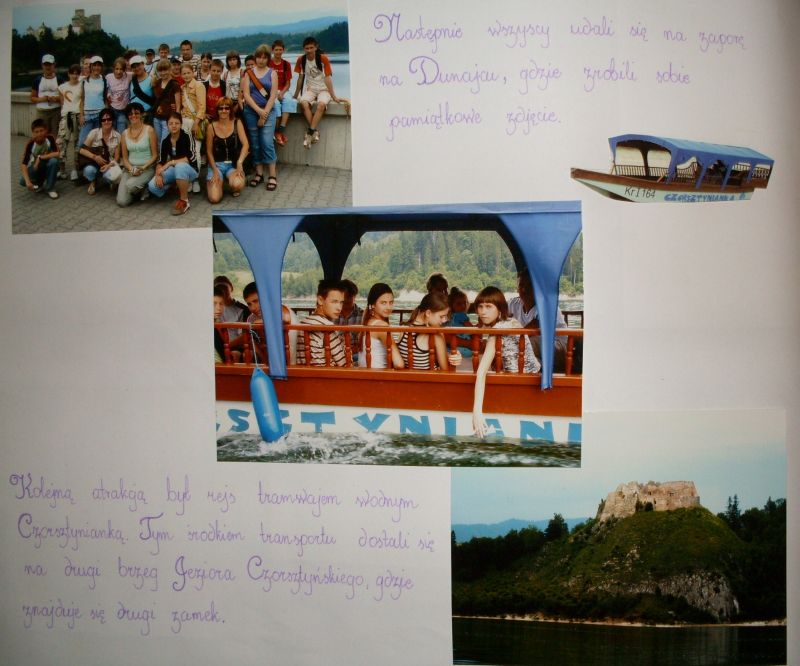 Następnie wszyscy udali się na zaporę
na Dunajcu, gdzie zrobili sobie
pamiątkowe zdjęcie.
Kr.I 164
CZORSZTYNIANKA
SZTYNIAN
Kolejną atrakcją był rejs tramwajem wodnym
Czorsztynianką. Tym środkiem transportu dostali się
na drugi brzeg Jeziora Czorsztyńskiego, gdzie
znajduje się drugi zamek.